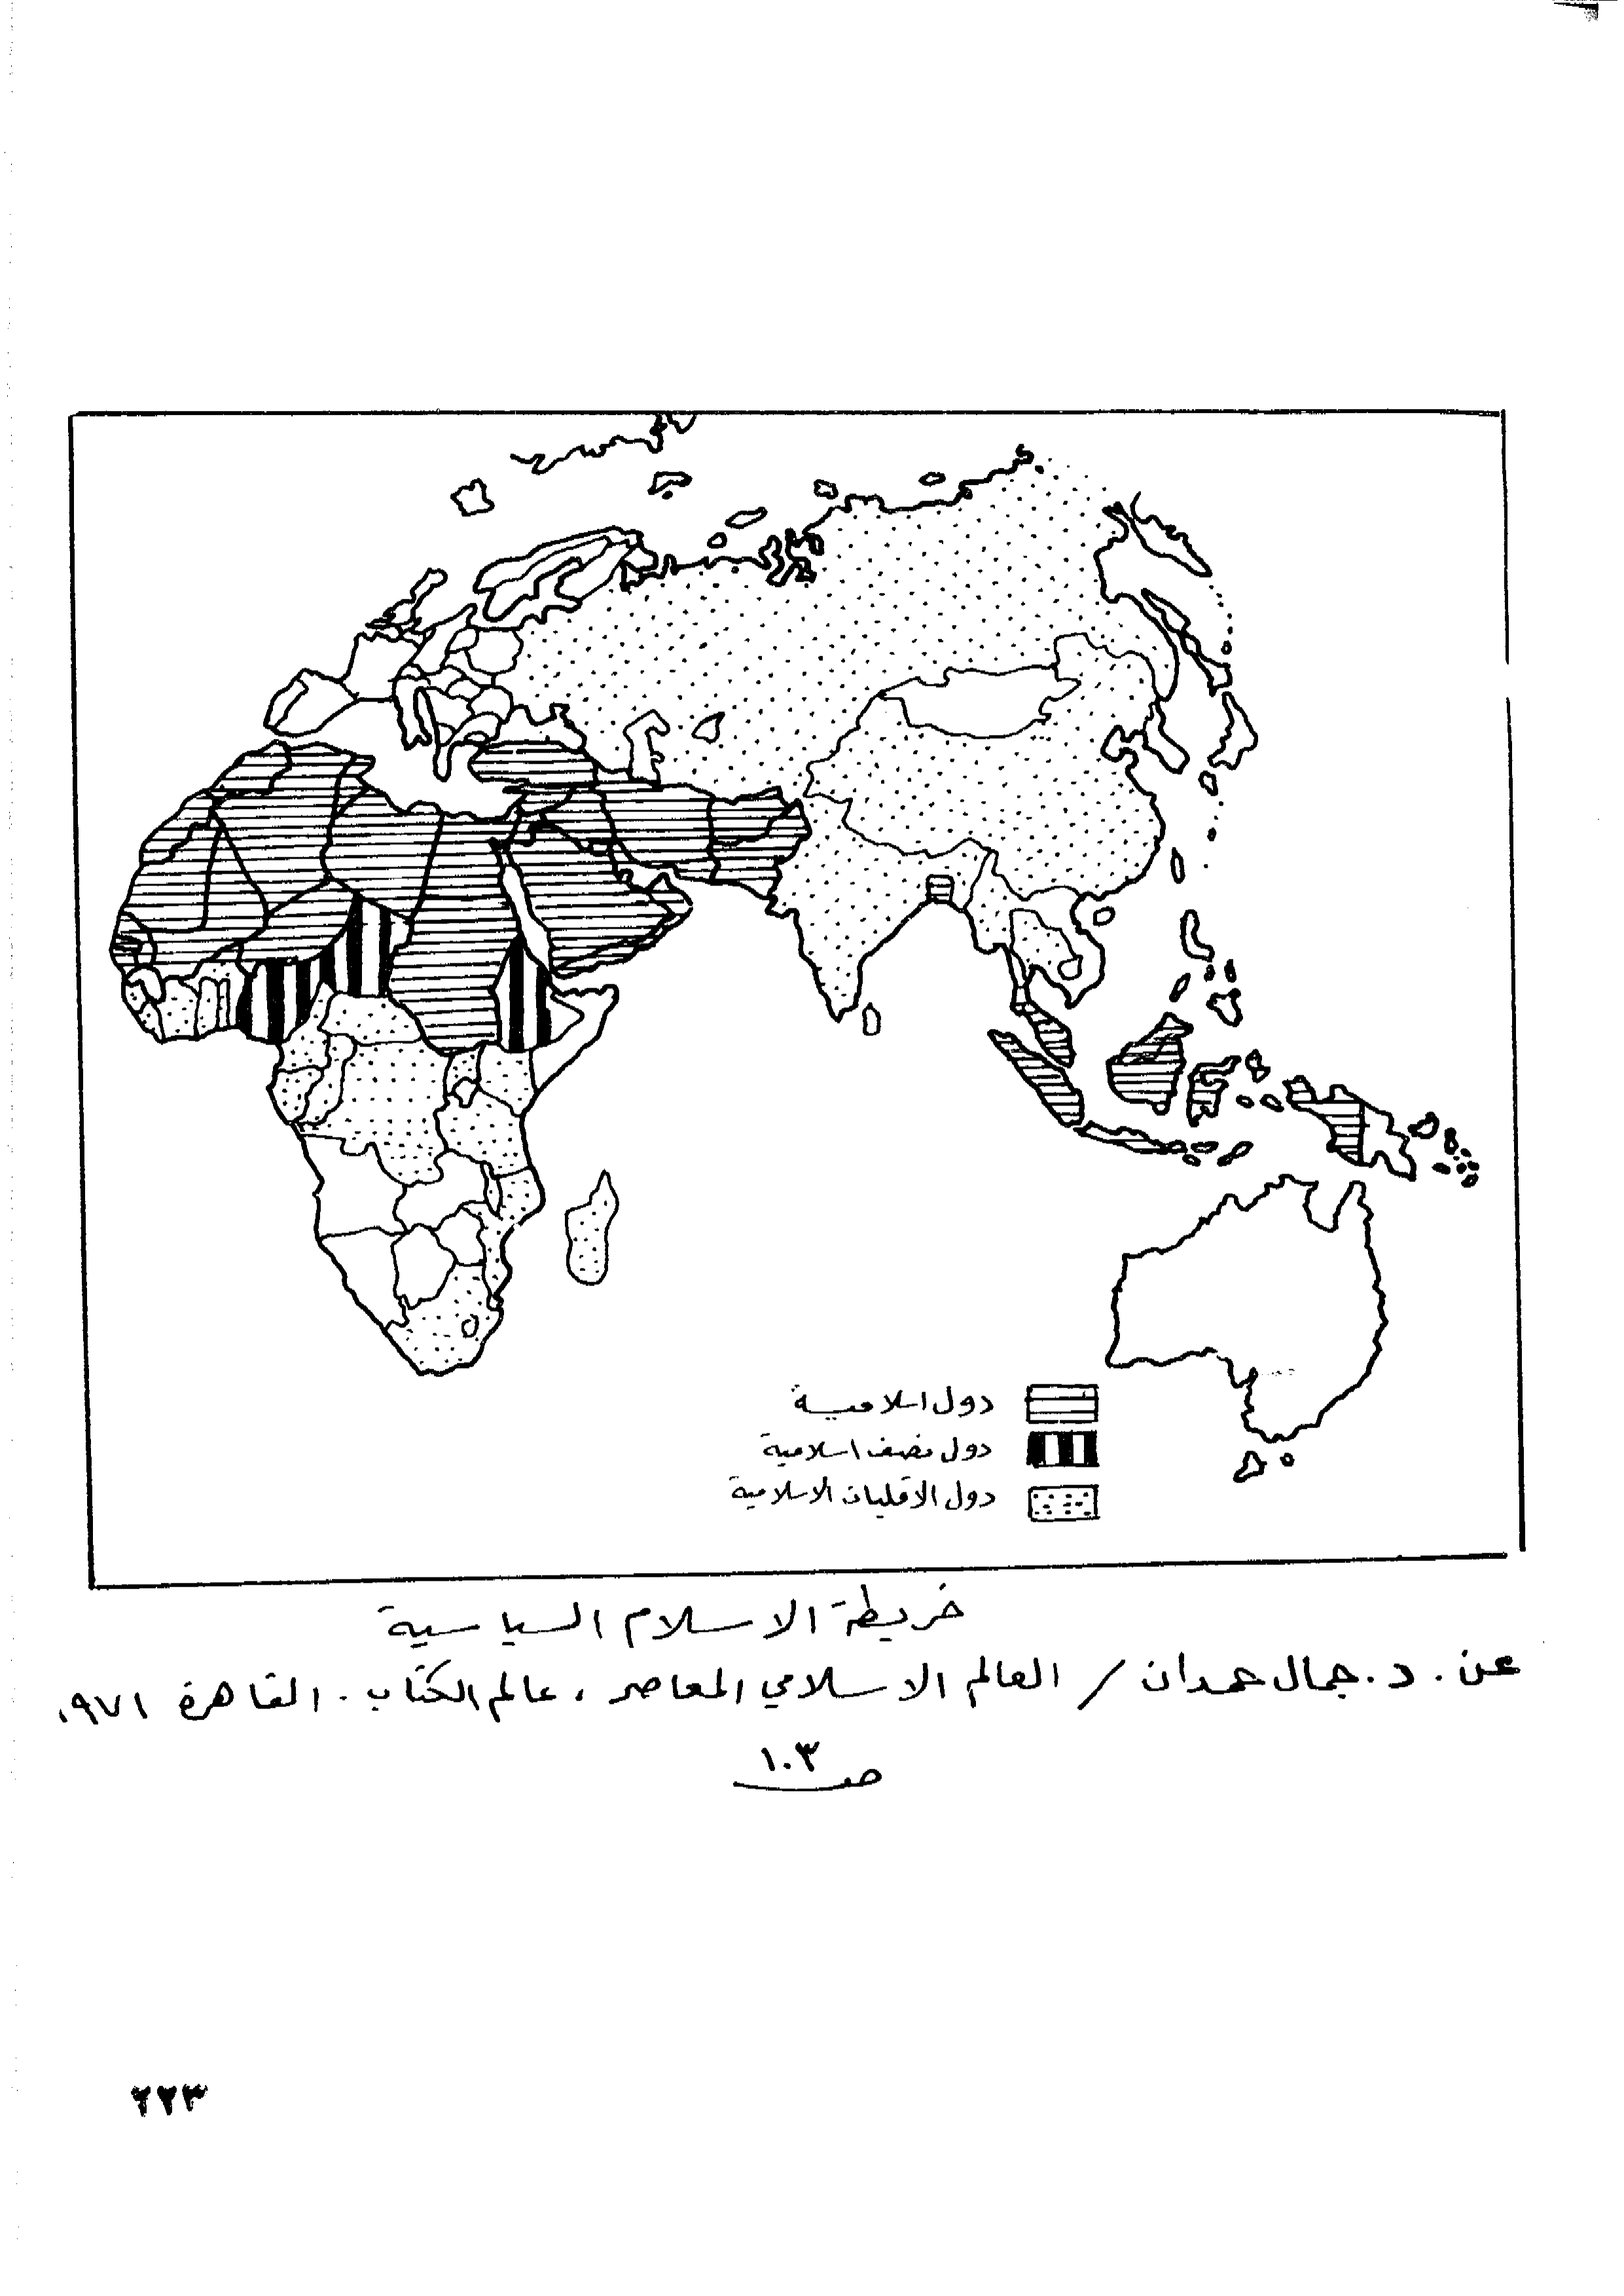 دول اسلامية
دول نصف اسلامية
دول الاقليات الاسلامية
خريطة الاسلام السياسية
عن . د . جمال حمدان / العالم الاسلامي المعاصر ، عالم الكتاب . القاهرة ١٩٧١
ص ١٠٣
٢٢٣